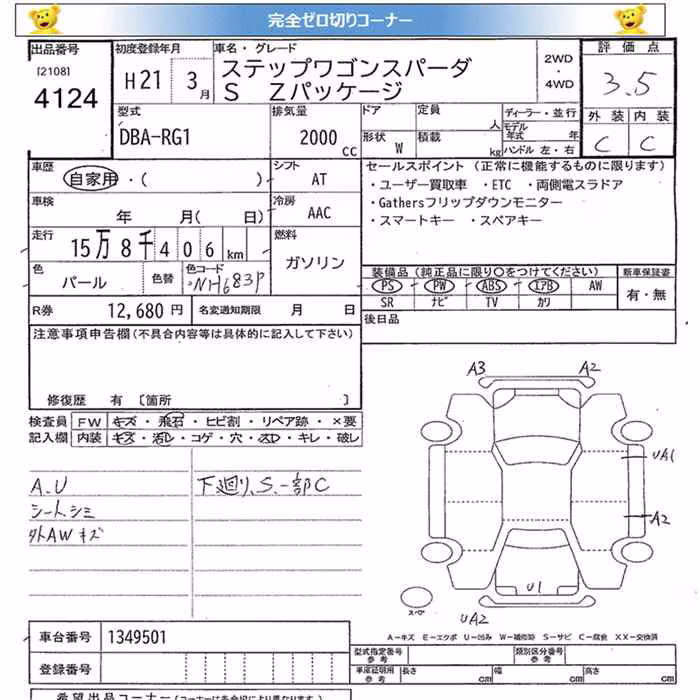 完全ゼロ切りコーナー
出品番号
[2108]
4124
初度登録年月
H21 3月
車名・グレード
ステップワゴンスパーダ
S Zパッケージ
2WD
・
4WD
評価点
3.5
外装 内装
C C
型式
DBA-RG1
排気量
2000 cc
ドア
形状 W
定員 人
積載 kg
ディーラー・並行
モデル年式 年
ハンドル 左・右
車歴
自家用・( )
シフト
AT
車検
年 月( 日)
冷房
AAC
走行
15万8千406km
燃料
ガソリン
色
パール
色替
色コード
NH683P
R券 12,680円
名変通知期限 月 日
セールスポイント (正常に機能するものに限ります)
・ユーザー買取車 ・ETC ・両側電スラドア
・Gathersフリップダウンモニター
・スマートキー ・スペアキー
装備品(純正品に限り○をつけてください)
PS PW ABS エアB AW
SR ナビ TV カワ
新車保証書
有・無
後日品
注意事項申告欄(不具合内容等は具体的に記入して下さい)
修復歴 有 〔箇所 〕
検査員記入欄
FW キズ・飛石・ヒビ割・リペア跡・×要
内装 キズ・汚レ・コゲ・穴・スレ・キレ・破レ
A.U
シートシミ
外AWキズ
下廻り、S.一部C
A3 A2
UA1
A2
U1
UA2
スペア
A−キズ E−エクボ U−凹み W−補修跡 S−サビ C−腐食 XX−交換済
車台番号 1349501
登録番号
型式指定番号
参考
類別区分番号
参考
車庫証明用
参考
長さ cm 幅 cm 高さ cm
希望出品コーナー